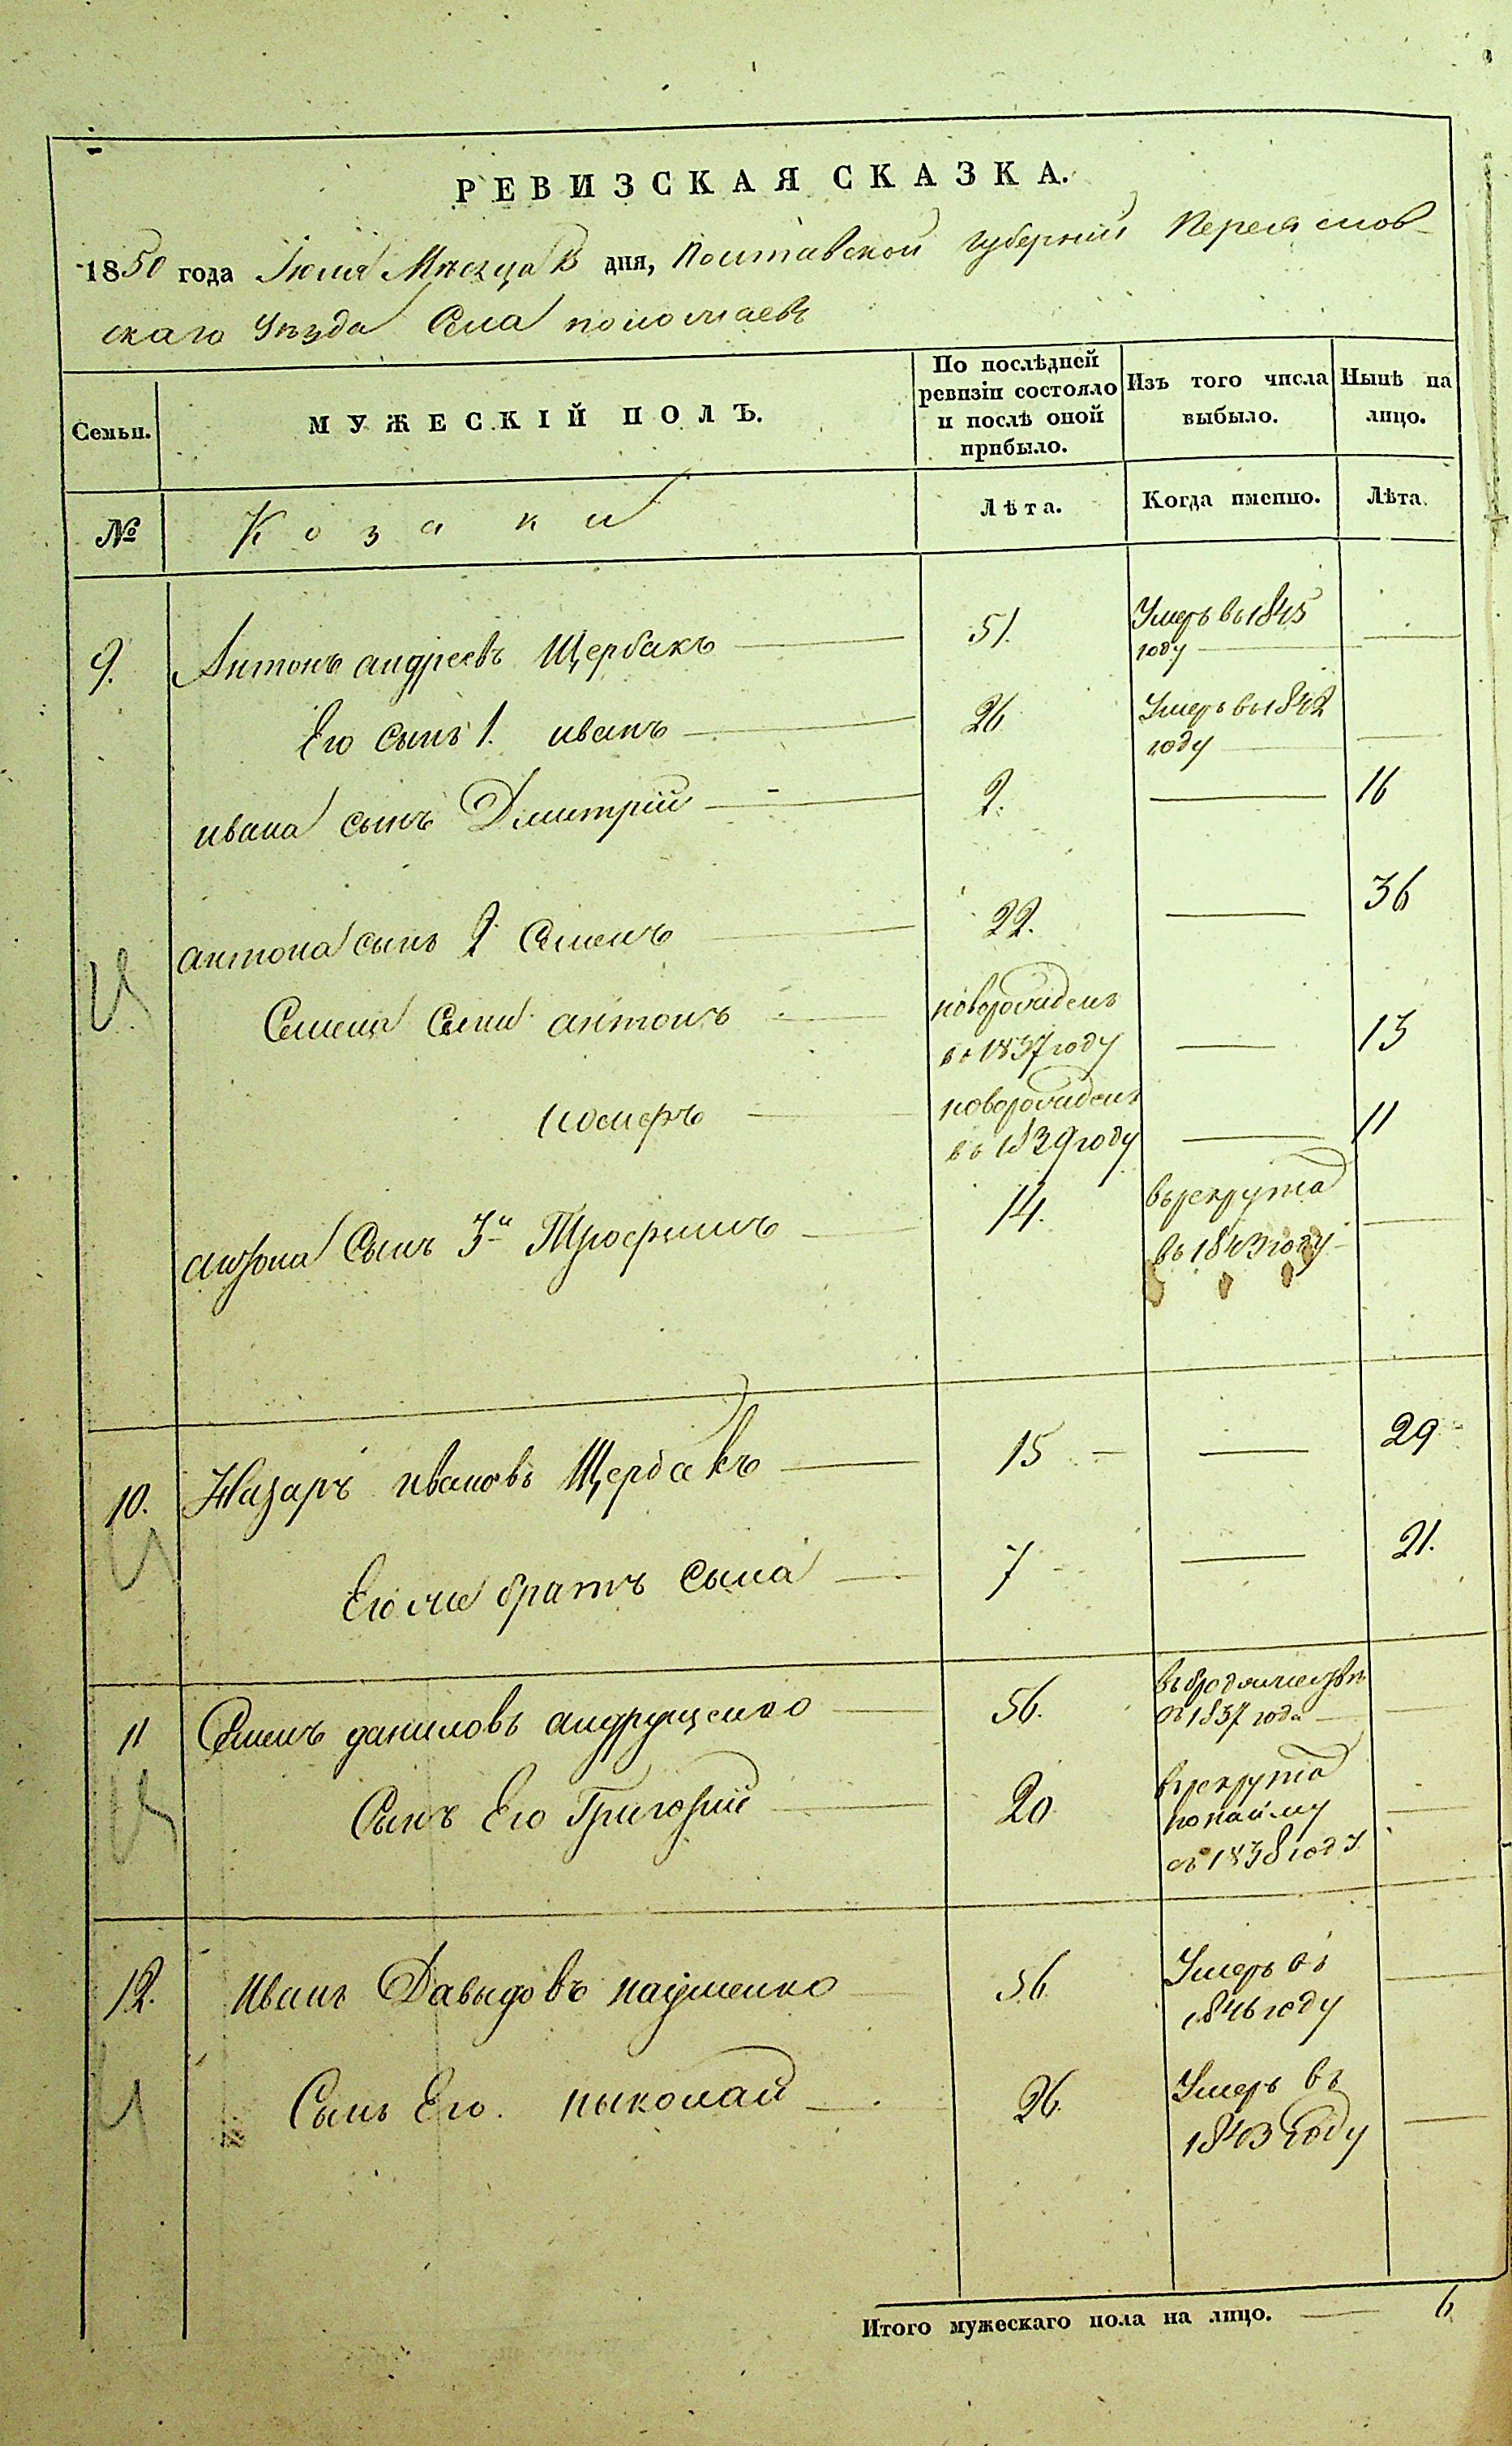 РЕВИЗСКАЯ СКАЗКА.
1850 года Іюля Мѣсяца дня, Полтавской губерніи Переяслов-
скаго Уѣзда Села
Семьи.
МУЖЕСКІЙ ПОЛЪ.
По послѣдней ревизіи состояло и послѣ оной прибыло.
Изъ того числа выбыло.
Нынѣ на лицо.
№
Козаки
Лѣта.
Когда именно.
Лѣта.
9. Антонъ андреевъ Щербакъ 51. Умеръ въ 1845
году
Его сынъ 1. иванъ 26 Умеръ въ 1842
году
ивана сынъ Дмитрій 2. 16
антона сынъ 2 Семенъ 22. 36
Семена сыны антонъ новорожденъ
въ 1837 году 13
новорожденъ
въ 1839 году 11
антона Сынъ 3й Трофимъ 14. въ рекрута
въ 1843 году
10. Назаръ ивановъ Щербакъ 15 29
Его же братъ сыла 7 21.
11 Семенъ даниловъ андрущенко 56. въ бродяжествѣ
съ 1837 года
Сынъ Его Григорій 20 въ рекрута
по найму
въ 1838 году
12. иванъ Давыдовъ науменко 56 Умеръ въ
1846 году
Сынъ Его. ныколай 26. Умеръ въ
1843 году
Итого мужескаго пола на лицо. 6